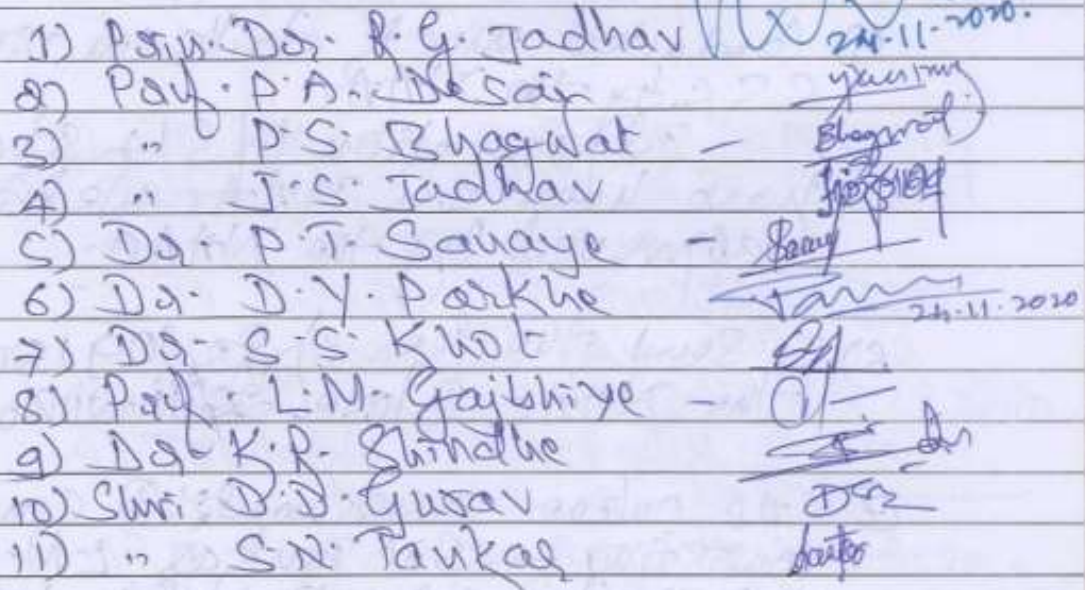 1) Prin. Dr. R. G. Jadhav 24.11.2020.
2) Prof. P. A. Desai
3) " P. S. Bhagwat - Bhagwat
4) " J. S. Jadhav
5) Dr. P. T. Savaye -
6) Dr. D. Y. Parkhe 24.11.2020
7) Dr. S. S. Khot
8) Prof. L. M. Gajbhiye -
9) Dr. K. R. Shindhe
10) Shri. D. D. Gurav
11) " S. N. Tavkar